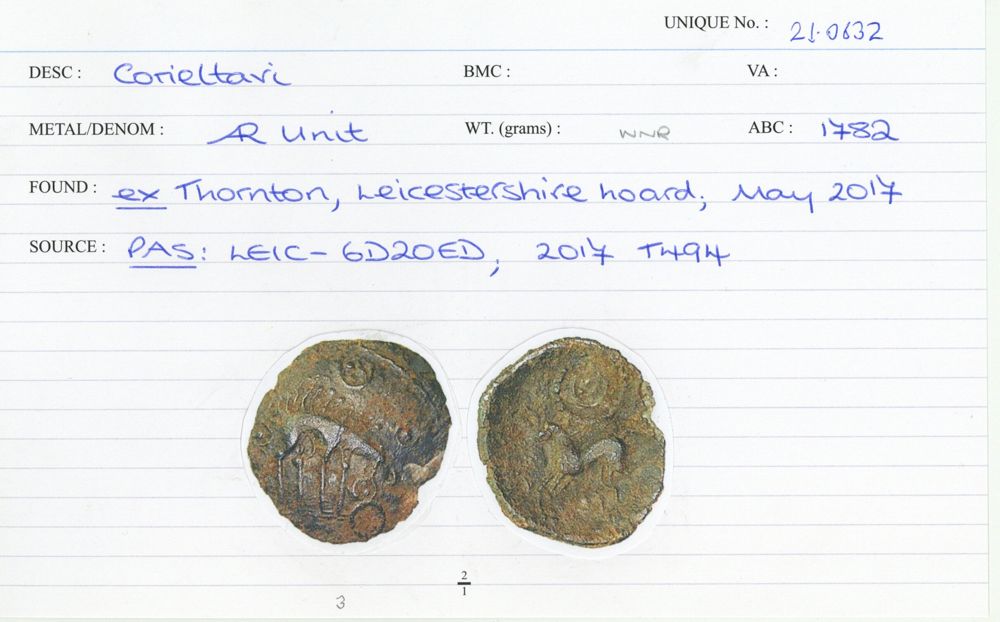 UNIQUE No. : 21.0632
DESC : Corieltavi BMC : VA :
METAL/DENOM : AR Unit WT. (grams) : WNR ABC : 1782
FOUND : ex Thornton, Leicestershire hoard; May 2017
SOURCE : PAS: LEIC-6D20ED, 2017 T494
2
1
3